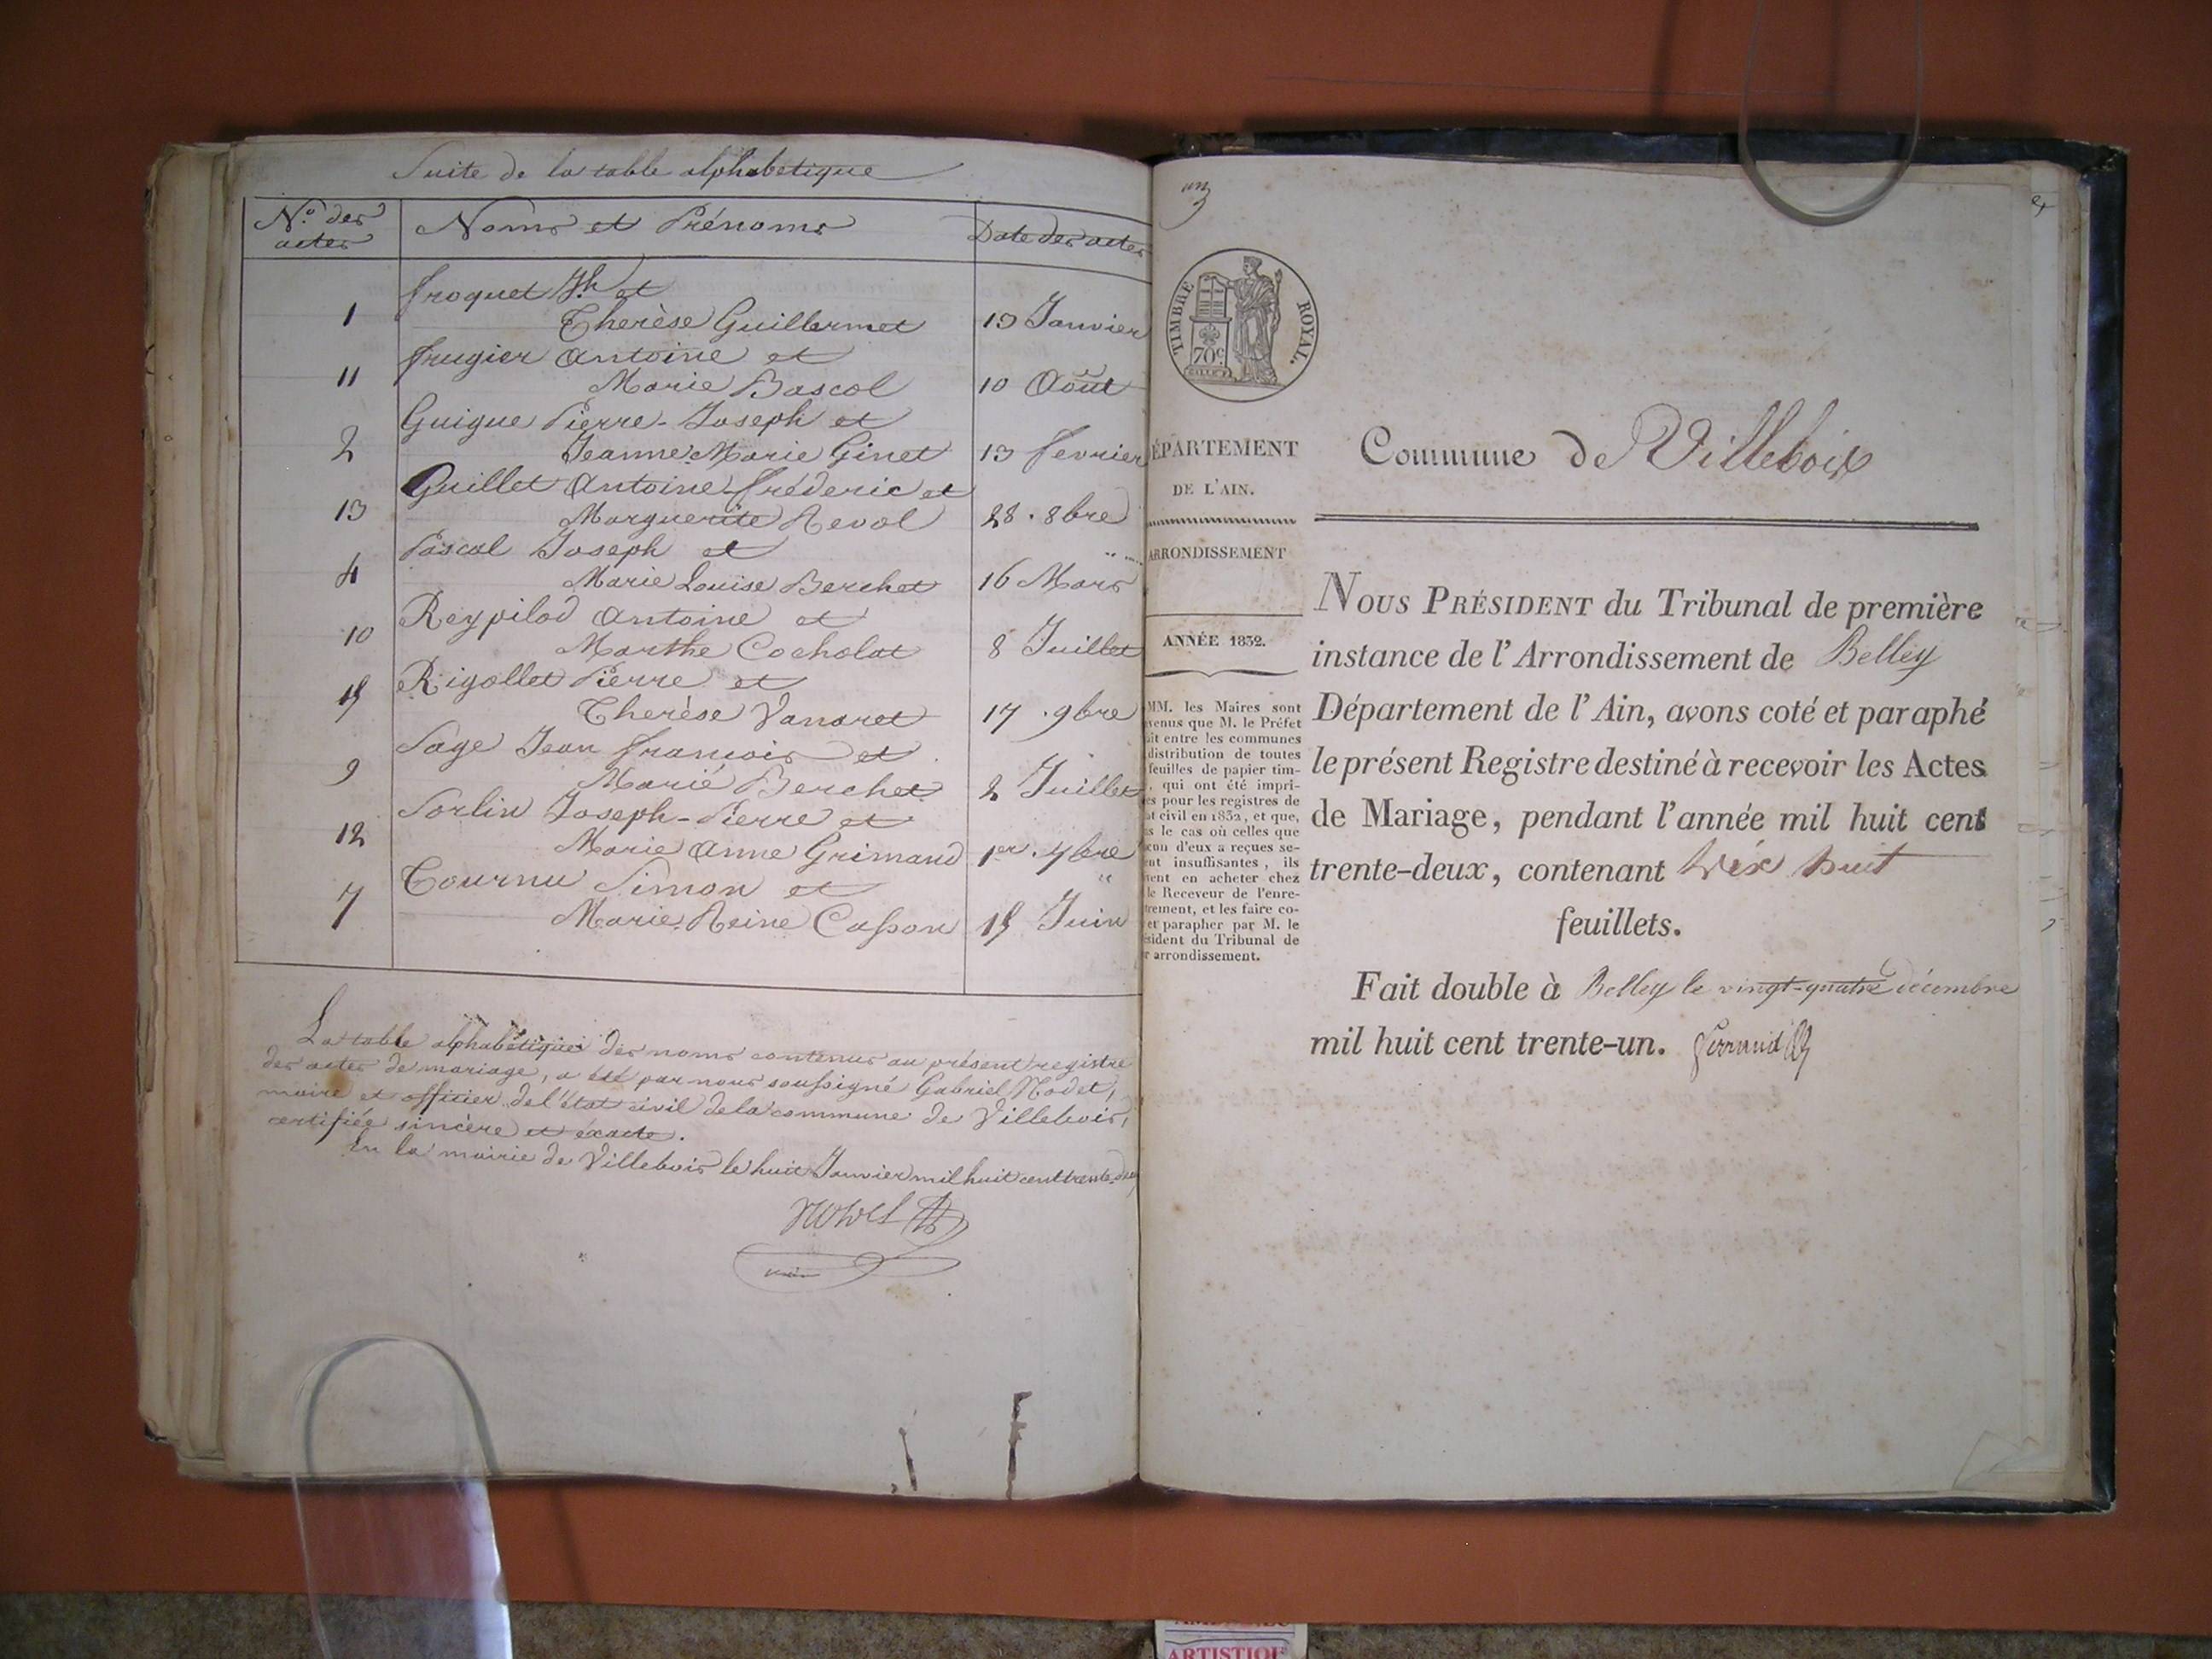 Suite de la table alphabétique
N.º des actes
Noms et Prénoms
Date des actes
froquet Jh et
1 Therèse Guillermet 13 Janvier
frugier Antoine et
11 Marie Bascol 10 Août
Guigue Pierre-Joseph et
2 Jeanne Marie Ginet 13 fevrier
Guillet Antoine-fréderic et
13 Marguerite Revol 28. 8bre
Pascal Joseph et
4 Marie Louise Berchet 16 Mars
Reypilod Antoine et
10 Marthe Cocholat 8 Juillet
Rigollet Pierre et
15 Therèse Vanaret 17. 9bre
Sage Jean francois et
9 Marie Berchet 2 Juillet
Sorlin Joseph-Pierre et
12 Marie Anne Grimaud 1er. 7bre
Tournu Simon et
7 Marie Reine Casson 15 Juin
La table alphabétique des noms contenus au présent registre
des actes de mariage, a été par nous soussigné Gabriel Nodet,
maire et officier de l'état civil de la commune de Villebois,
certifiée sincère et exacte.
En la mairie de Villebois le huit Janvier mil huit cent trente-deux
un
TIMBRE ROYAL.
70c
ÉPARTEMENT
DE L'AIN.
ARRONDISSEMENT
ANNÉE 1832.
MM. les Maires sont
venus que M. le Préfet
ait entre les communes
distribution de toutes
feuilles de papier tim-
, qui ont été impri-
es pour les registres de
at civil en 1832, et que,
s le cas où celles que
cun d'eux a reçues se-
ent insuffisantes, ils
nent en acheter chez
le Receveur de l'enre-
trement, et les faire co-
et parapher par M. le
ésident du Tribunal de
r arrondissement.
Commune de Villebois
NOUS PRÉSIDENT du Tribunal de première
instance de l'Arrondissement de Belley
Département de l'Ain, avons coté et paraphé
le présent Registre destiné à recevoir les Actes
de Mariage, pendant l'année mil huit cent
trente-deux, contenant dix huit
feuillets.
Fait double à Belley le vingt-quatre décembre
mil huit cent trente-un.
ARTISTIQUE